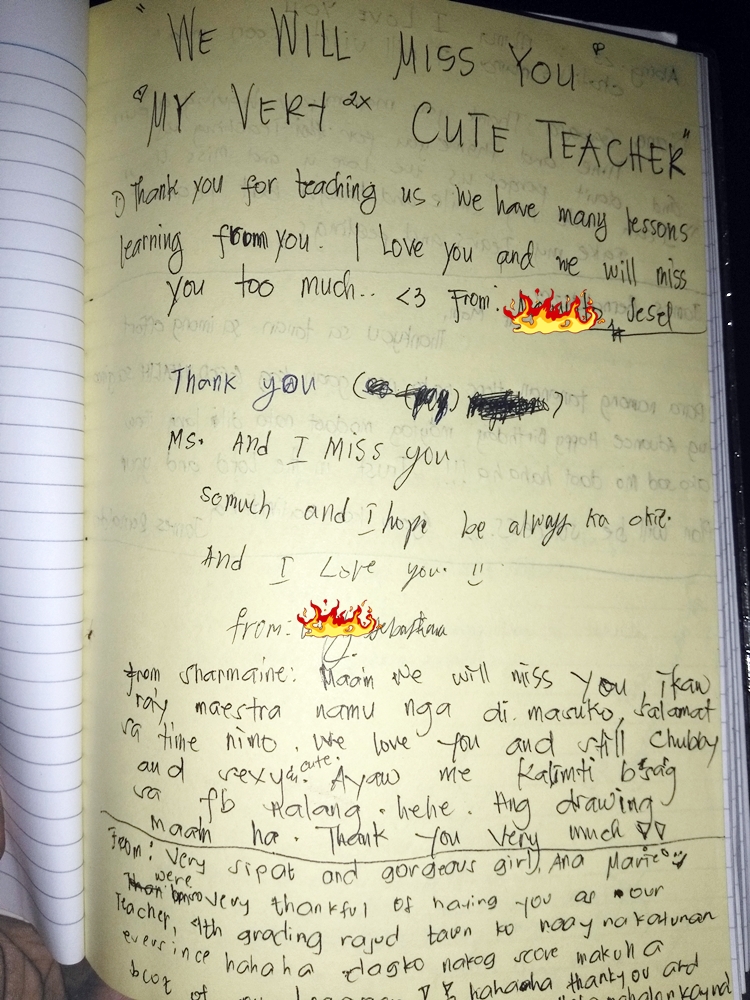 "WE WILL MISS YOU"
"MY VERY 2x CUTE TEACHER"
① Thank you for teaching us. We have many lessons
learning from you. I Love you and we will miss
you too much.. <3 From: Jesel
Thank you
Ms. And I MISS you
somuch and I hope be always ka okie.
And I Love you. !!
from:
from sharmaine: Maam we will miss you, ikaw
ray maestra namu nga di masuko, salamat
sa time nimo. We love you and still chubby
and sexy & cute. Ayaw me kalimti bsag
sa fb nalang. hehe. Ang drawing
maam ha. Thank you very much ♡♡
From: Very sipat and gorgeous girl, Ana Marie
were very thankful of having you as our
Teacher, 4th grading rajud tawn ko naay nakatunan
eversince hahaha dagko nakog score makuha
hahaaha thankyou and